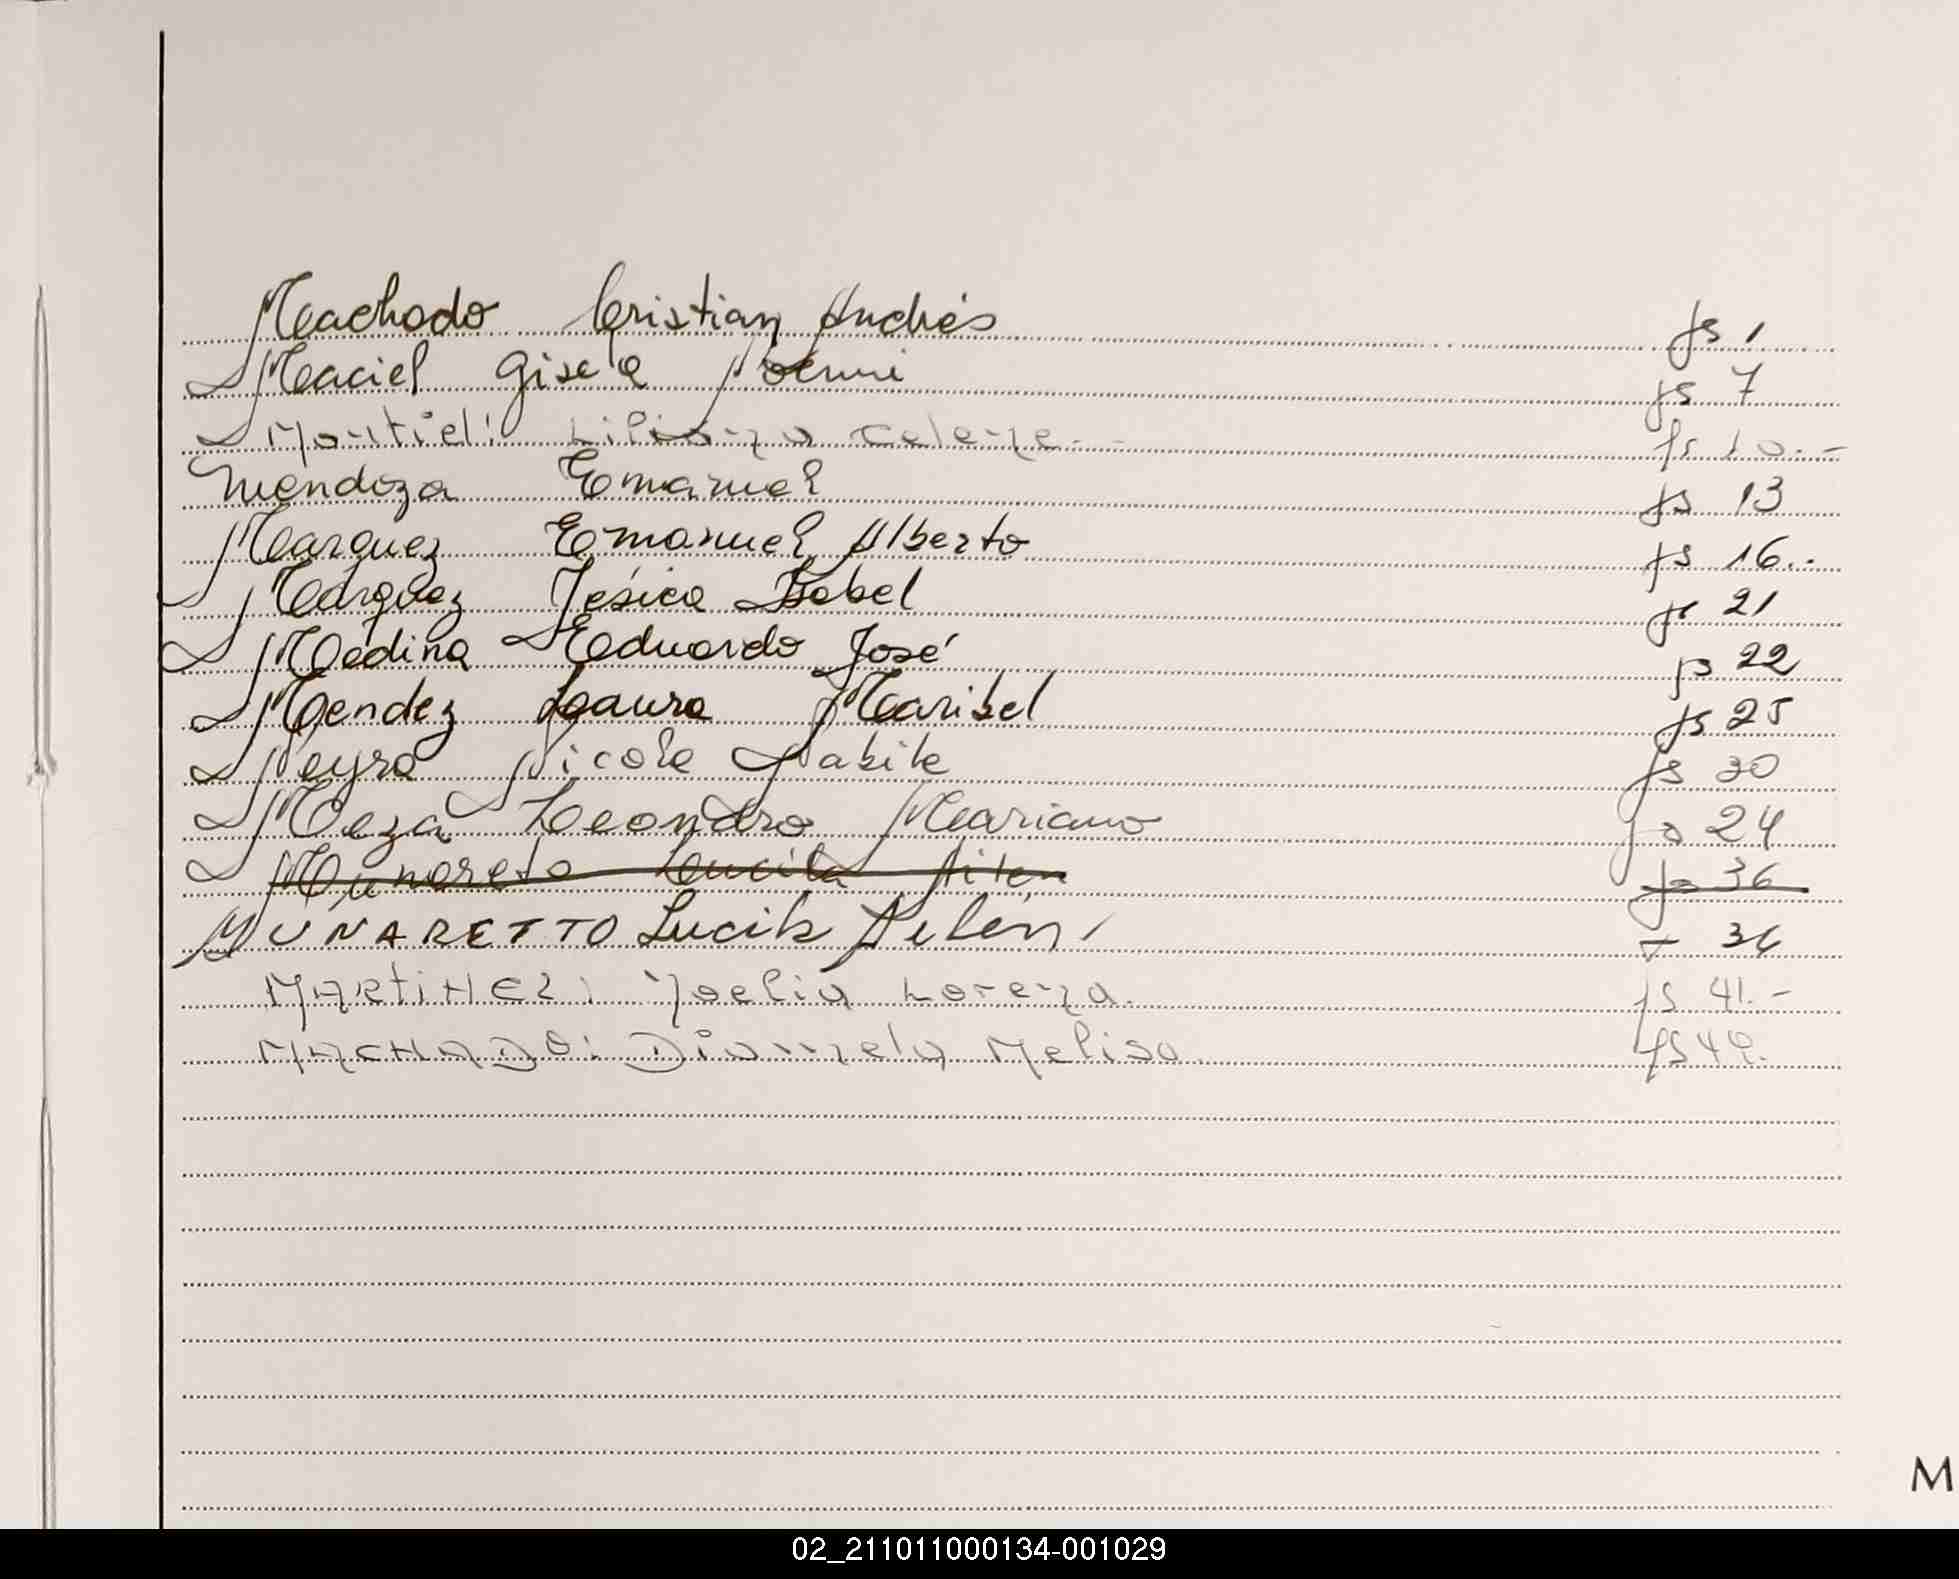 Machado Cristian Andrés fs 1
Maciel Gisela Noemi fs 7
Montiel: Liliana Celeste fs 10.-
Mendoza Emanuel fs 13
Marquez Emanuel Alberto fs 16..
Márquez Jésica Isabel fs 21
Medina Eduardo José fs 22
Mendez Laura Maribel fs 25
Neyra Nicole Nabila fs 30
Meza Leandro Mariano fs 24
Munareto Lucila Ailen fs 36
MUNARETTO Lucila Ailén 36
MARTINEZ: Noelia Lorena. fs 41.-
MACHADO: Dianela Melisa fs 49.
M
02_211011000134-001029